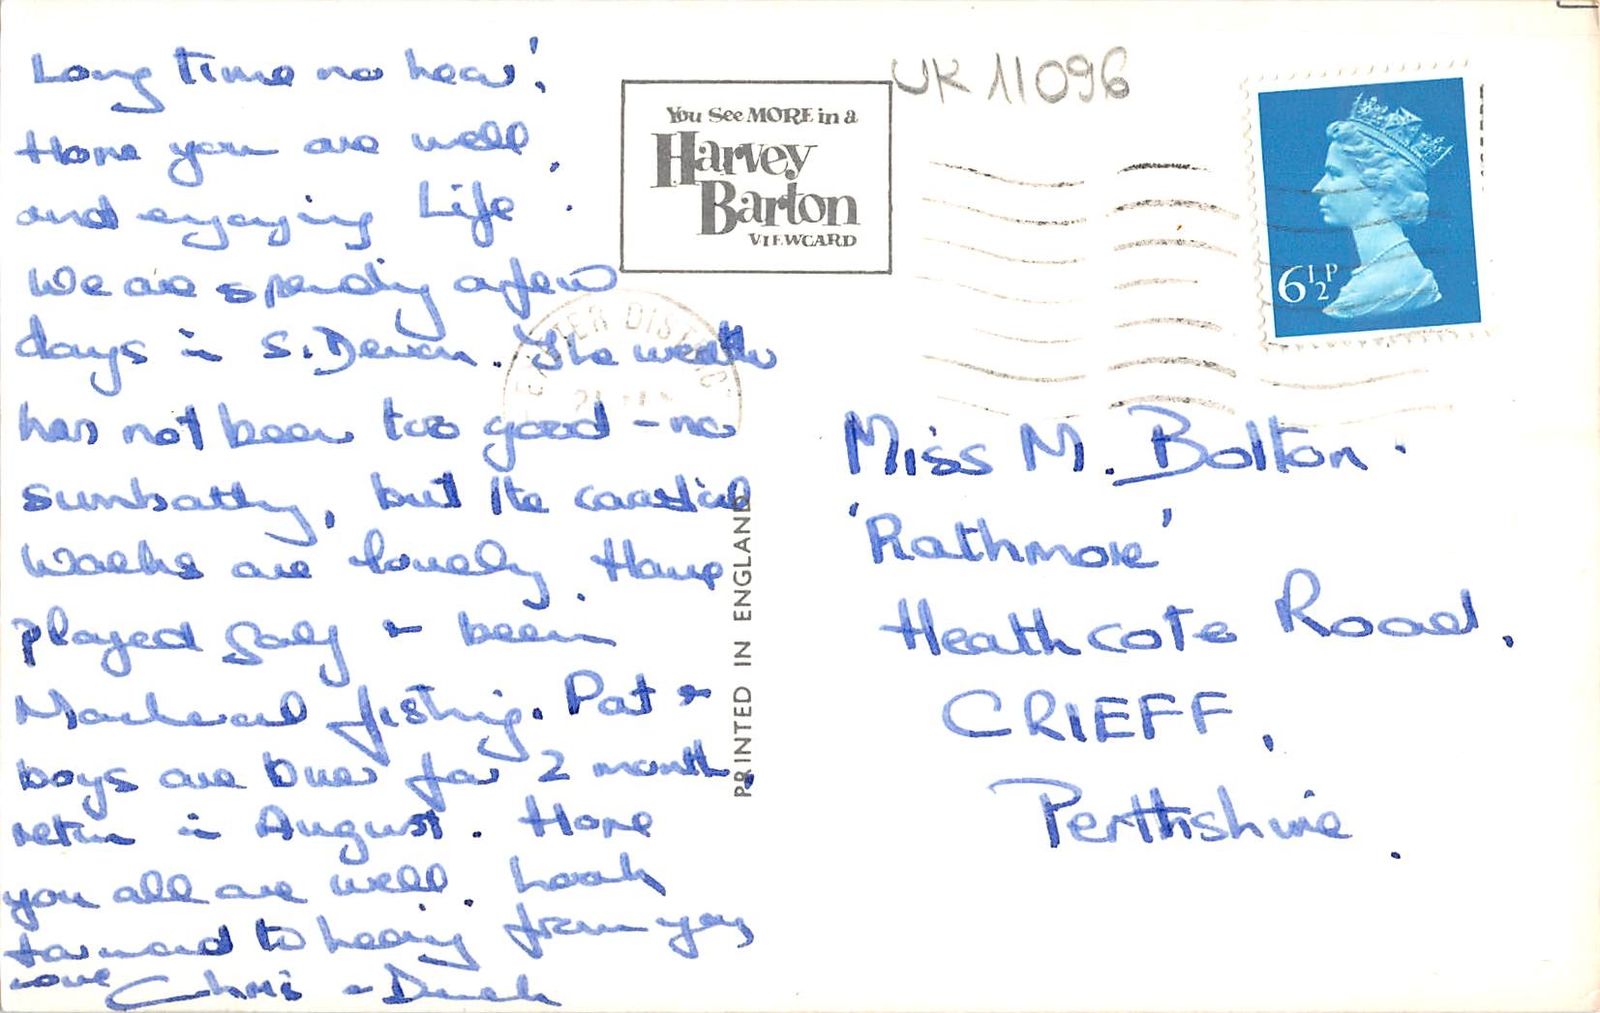 Long time no hear!
Hope you are well,
and enjoying Life.
We are spending a few
days in S. Devon. The weather
has not been too good - no
sunbathing, but the coastal
walks are lovely. Have
played golf & been
Mackeral fishing. Pat &
boys are over for 2 month,
return in August. Hope
you all are well. Look
forward to hearing from you,
Love Chris &
You See MORE in a
Harvey
Barton
VIEWCARD
UK 11096
6½P
EXETER DISTRICT
PRINTED IN ENGLAND
Miss M. Bolton.
'Rathmore'
Heathcote Road,
CRIEFF,
Perthshire.